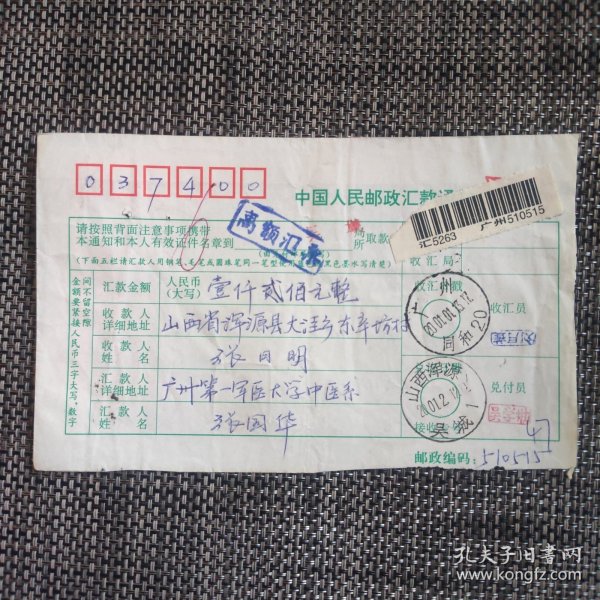 037400
中国人民邮政汇款通
汇5263 广州510515
请按照背面注意事项携带
本通知和本人有效证件名章到
局取款
所
高额汇票
(下面五栏请汇款人用钢笔、毛笔或圆珠笔同一笔型使用
黑色墨水写清楚)
收汇局
金额要紧接人民币三字大写,数字
间不留空隙
汇款金额
人民币
(大写)
壹仟贰佰元整
收汇员
收款人
详细地址
山西省浑源县大洼乡东辛坊村
广州
2001.01.13.17
同和20
收款人
姓名
张日明
汇款人
详细地址
广州第一军医大学中医系
山西浑源
吴城
兑付员
汇款人
姓名
张国华
接收
47
邮政编码:510515
孔夫子旧书网
www.kongfz.com